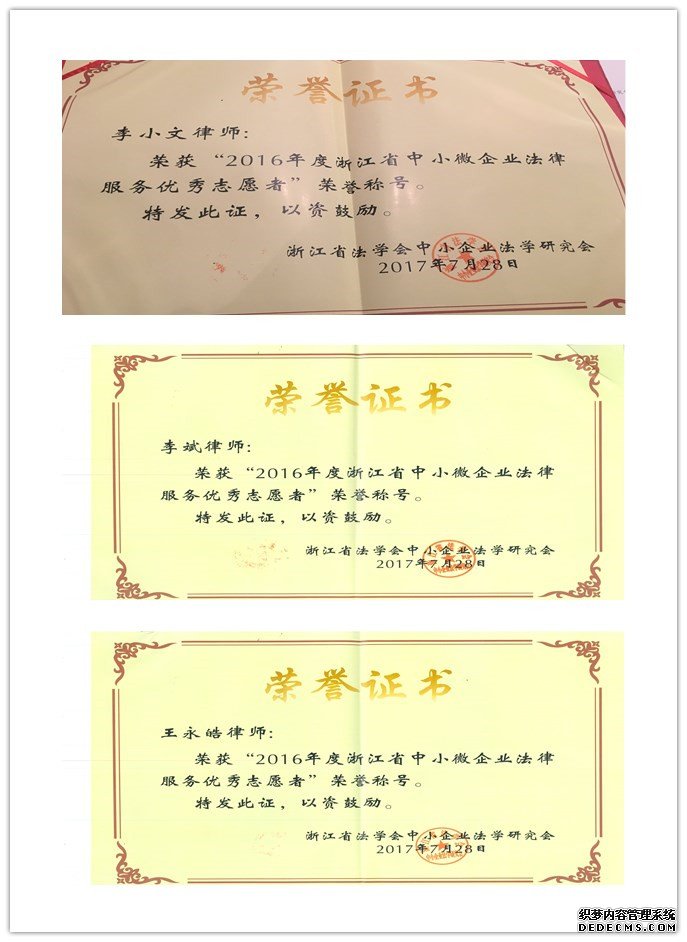 荣誉证书
李小文律师：
荣获“2016年度浙江省中小微企业法律
服务优秀志愿者”荣誉称号。
特发此证，以资鼓励。
浙江省法学会中小企业法学研究会
2017年7月28日
荣誉证书
李斌律师：
荣获“2016年度浙江省中小微企业法律
服务优秀志愿者”荣誉称号。
特发此证，以资鼓励。
浙江省法学会中小企业法学研究会
2017年7月28日
荣誉证书
王永皓律师：
荣获“2016年度浙江省中小微企业法律
服务优秀志愿者”荣誉称号。
特发此证，以资鼓励。
浙江省法学会中小企业法学研究会
2017年7月28日
织梦内容管理系统
DEDECMS.COM